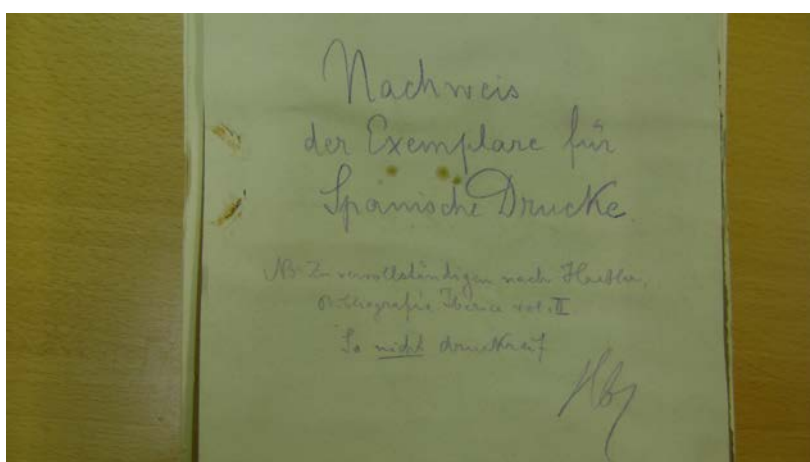 Nachweis
der Exemplare für
Spanische Drucke
NB. Zu vervollständigen nach Haebler,
Bibliografia Iberica vol. II
So nicht druckreif